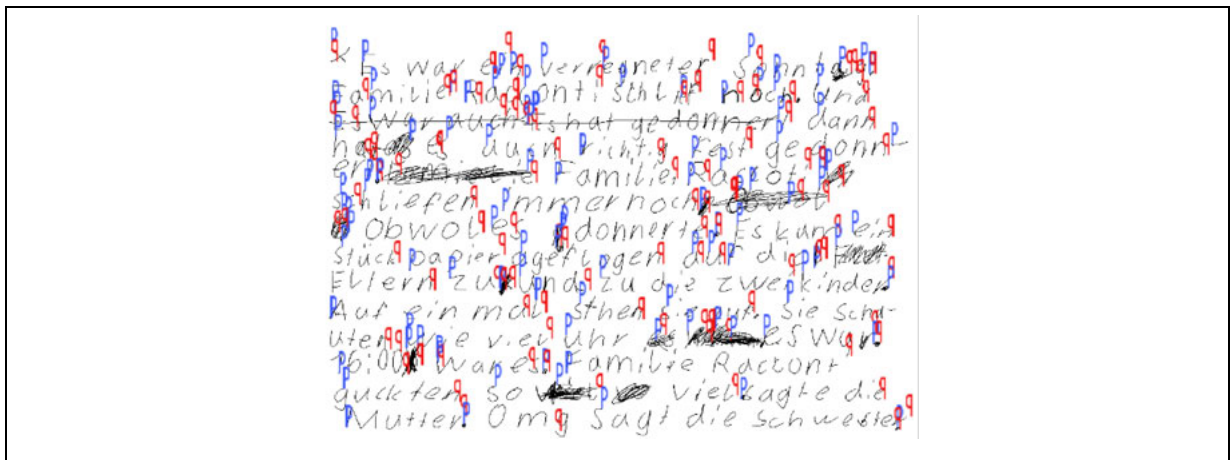 * Es war ein verregneter Sonntag
Familie Racront schlief noch. Und
Es war auch Es hat gedonner dann
hat es auch richtig Fest gedonn-
er Familie Racot
schliefen Immer noch
Obwol Es donnerte. Es kam ein
Stück papier geflogen auf die
Eltern zu und zu die zwei kinder
Auf ein mal sthen sie auf. sie schu-
uten wie viel Uhr es war.
16:00 war es. Familie Racront
guckten so viel sagte die
Mutter Omg sagt die Schwester